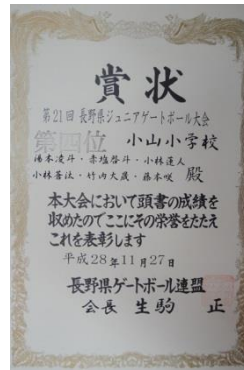 賞状
第21回 長野県ジュニアゲートボール大会
第四位 小山小学校
湯本凌斗・赤塩啓斗・小林蓮人
小林蒼汰・竹内大晟・藤本咲 殿
本大会において頭書の成績を
収めたのでここにその栄誉をたたえ
これを表彰します
平成28年11月27日
長野県ゲートボール連盟
会長 生駒 正